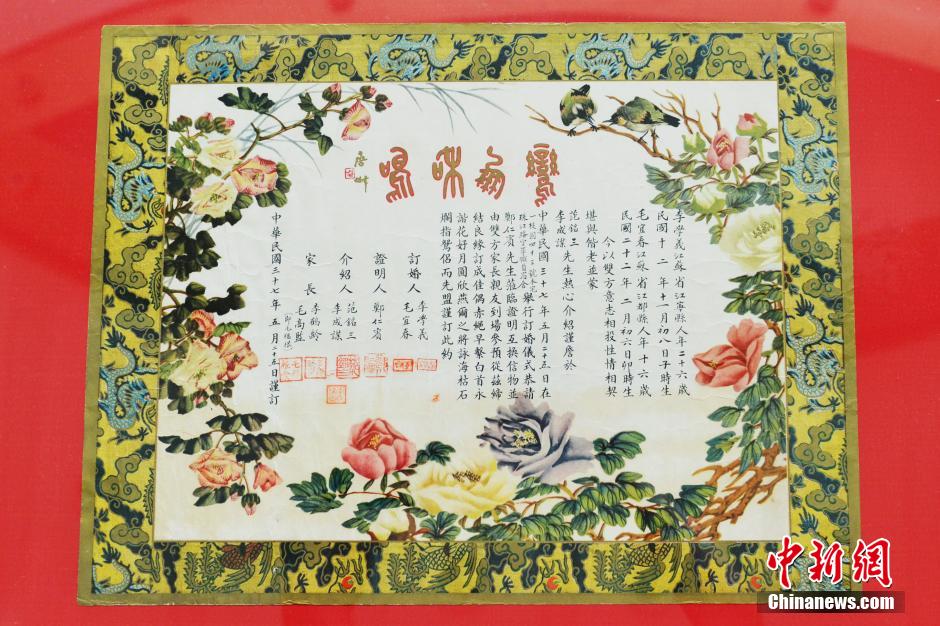 鸞翔和鳴
李學義江蘇省江寧縣人年二十六歲
民國十二年十一月初八日子時生
毛宜春江蘇省江都縣人年十六歲
民國二十二年二月初六日卯時生
今以雙方意志相投性情相契
堪與偕老並蒙
范銘三
李成謀先生熱心介紹謹詹於
中華民國三十七年五月二十五日在
舉行訂婚儀式恭請
鄭仁賓先生蒞臨證明互換信物並
由雙方家長親友到場參預從茲締
結良緣訂成佳偶赤繩早繫白首永
諧花好月圓欣燕爾之將詠海枯石
爛指鴛侶而先盟謹訂此約
訂婚人 李學義
毛宜春
證明人 鄭仁賓
介紹人 范銘三
李成謀
家長 李鶴齡
毛高監
中華民國三十七年五月二十五日謹訂
中新網
Chinanews.com